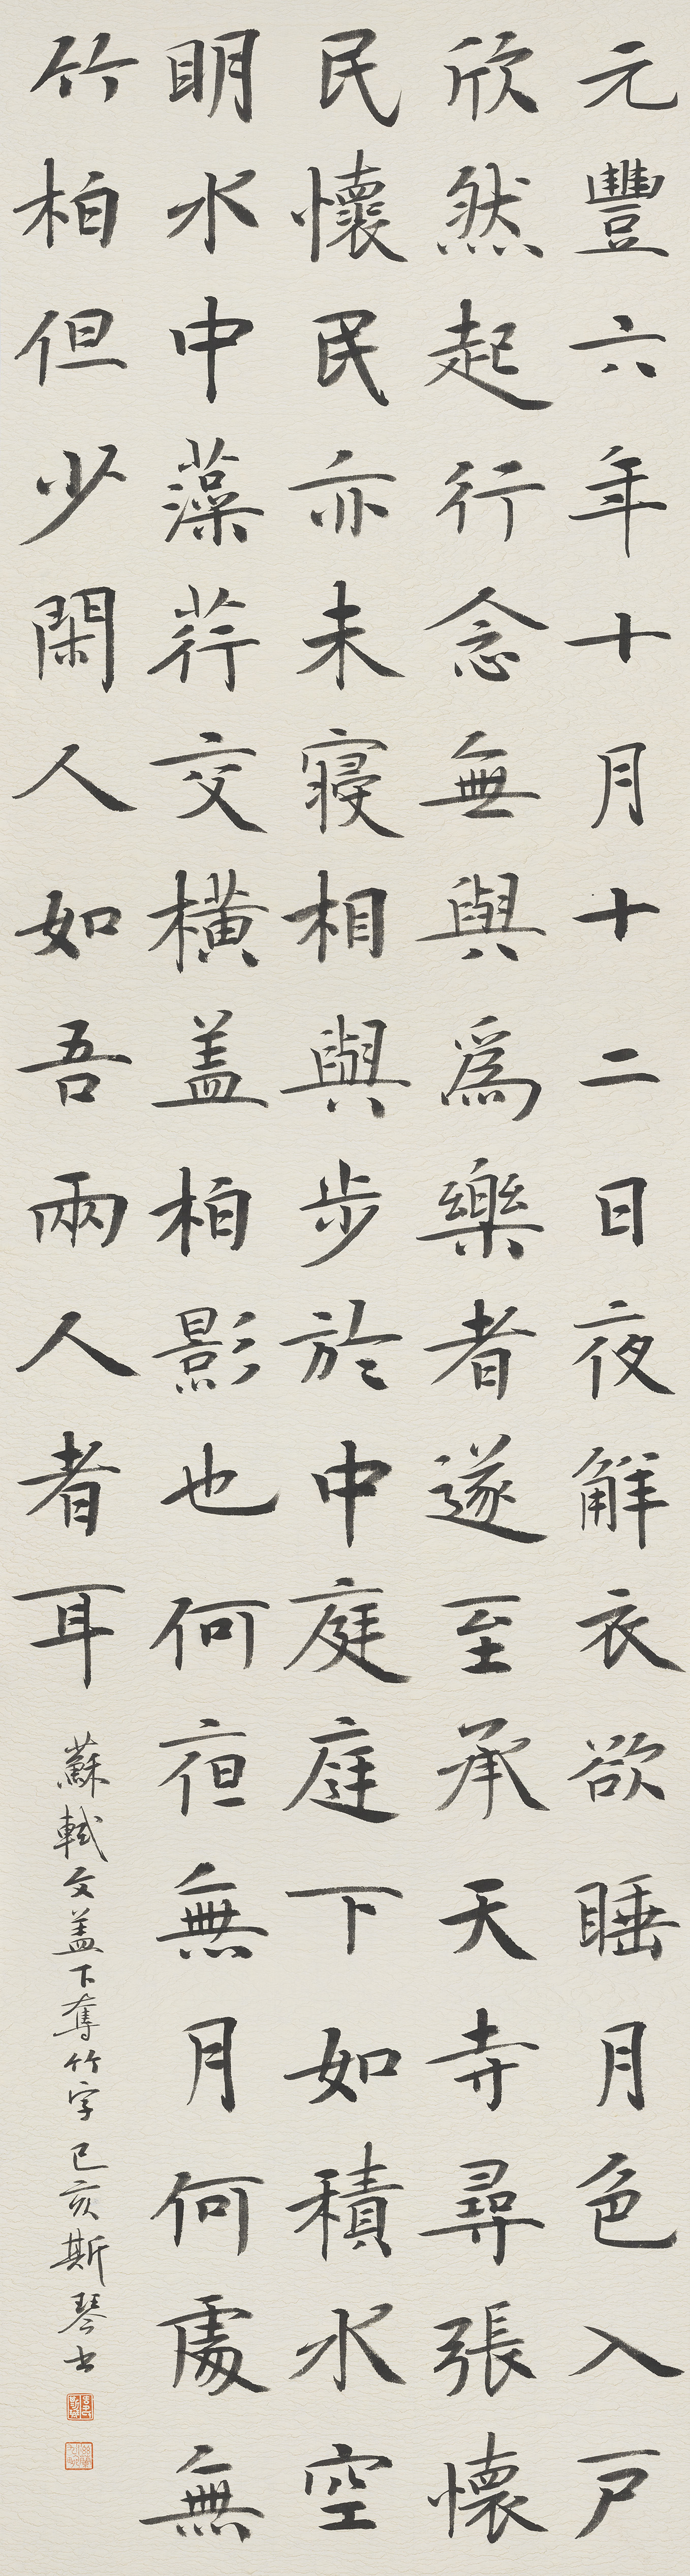 元豐六年十月十二日夜解衣欲睡月色入戶
欣然起行念無與爲樂者遂至承天寺尋張懷
民懷民亦未寢相與步於中庭庭下如積水空
明水中藻荇交橫盖柏影也何夜無月何處無
竹柏但少閑人如吾兩人者耳
蘇軾文盖下奪竹字 己亥斯琴书